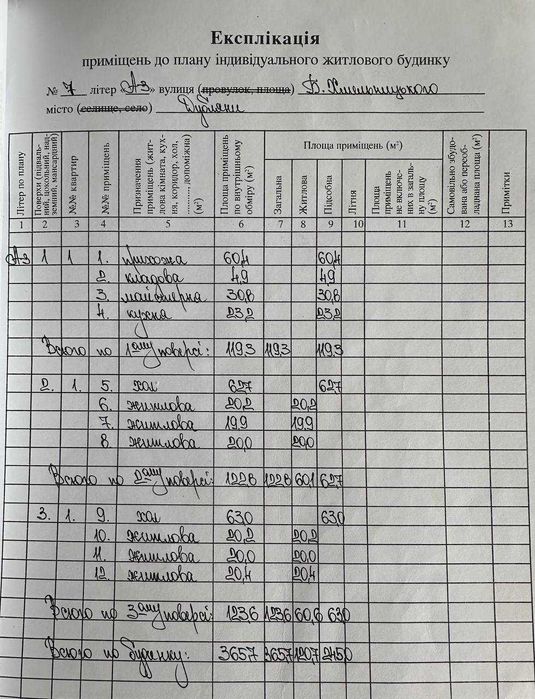 Експлікація
приміщень до плану індивідуального житлового будинку
№ 7 літер «Аз» вулиця (провулок, площа) Б. Хмельницького
місто (селище, село) Дубляни
Літер по плану
Поверхи (підвальний, цокольний, надземний, мансардний)
№№ квартир
№№ приміщень
Призначення приміщень (житлова кімната, кухня, коридор, хол, ........., допоміжна) (м²)
Площа приміщень по внутрішньому обміру (м²)
Площа приміщень (м²)
Загальна
Житлова
Підсобна
Літня
Площа приміщень не включених в загальну площу (м²)
Самовільно збудована або переобладнана площа (м²)
Примітки
1 2 3 4 5 6 7 8 9 10 11 12 13
Аз 1 1 1. прихожа 60,4 60,4
2. кладова 4,9 4,9
3. майстерна 30,8 30,8
4. кухна 23,2 23,2
Всього по 1ому поверсі: 119,3 119,3 119,3
2. 1. 5. хол 62,7 62,7
6. житлова 20,2 20,2
7. житлова 19,9 19,9
8. житлова 20,0 20,0
Всього по 2ому поверсі: 122,8 122,8 60,1 62,7
3. 1. 9. хол 63,0 63,0
10. житлова 20,2 20,2
11. житлова 20,0 20,0
12. житлова 20,4 20,4
Всього по 3ому поверсі: 123,6 123,6 60,6 63,0
Всього по будинку: 365,7 365,7 120,7 245,0